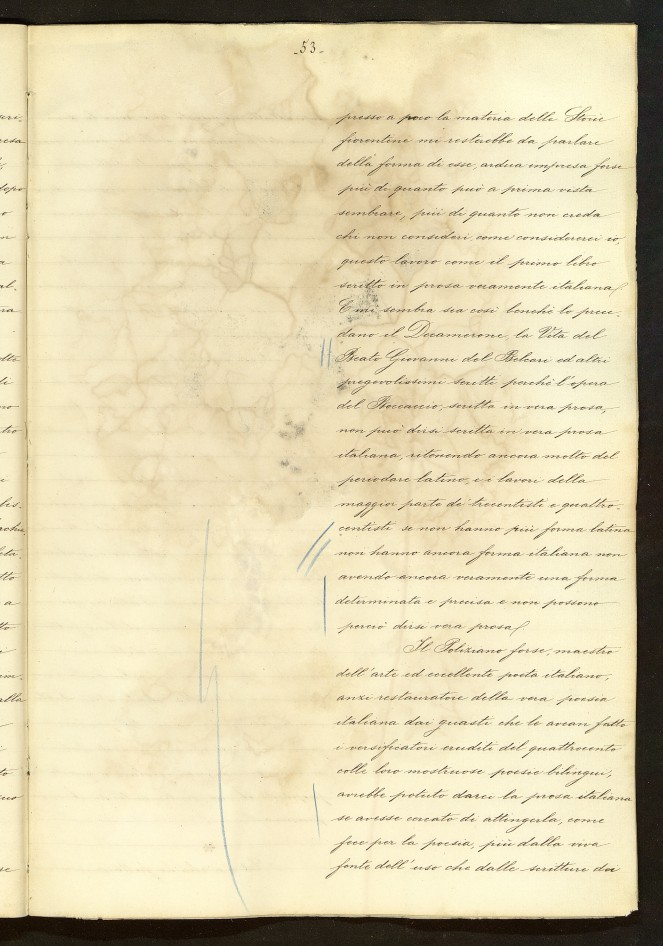 -53-
presso a poco la materia delle Storie
fiorentine mi resterebbe da parlare
della forma di esse, ardua impresa forse
più di quanto può a prima vista
sembrare, più di quanto non creda
chi non consideri, come considererei io,
questo lavoro come il primo libro
scritto in prosa veramente italiana.
E mi sembra sia così benché lo prece-
dano il Decamerone, la Vita del
Beato Giovanni del Belcari ed altri
pregevolissimi scritti perché l'opera
del Boccaccio, scritta in vera prosa,
non può dirsi scritta in vera prosa
italiana, ritenendo ancora molto del
periodare latino, e i lavori della
maggior parte de' trecentisti e quattro-
centisti se non hanno più forma latina
non hanno ancora forma italiana non
avendo ancora veramente una forma
determinata e precisa e non possono
perciò dirsi vera prosa.
Il Poliziano forse, maestro
dell'arte ed eccellente poeta italiano,
anzi restauratore della vera poesia
italiana dai guasti che le avean fatto
i versificatori eruditi del quattrocento
colle loro mostruose poesie bilingui,
avrebbe potuto darci la prosa italiana
se avesse cercato di attingerla, come
fece per la poesia, più dalla viva
fonte dell'uso che dalle scritture dei